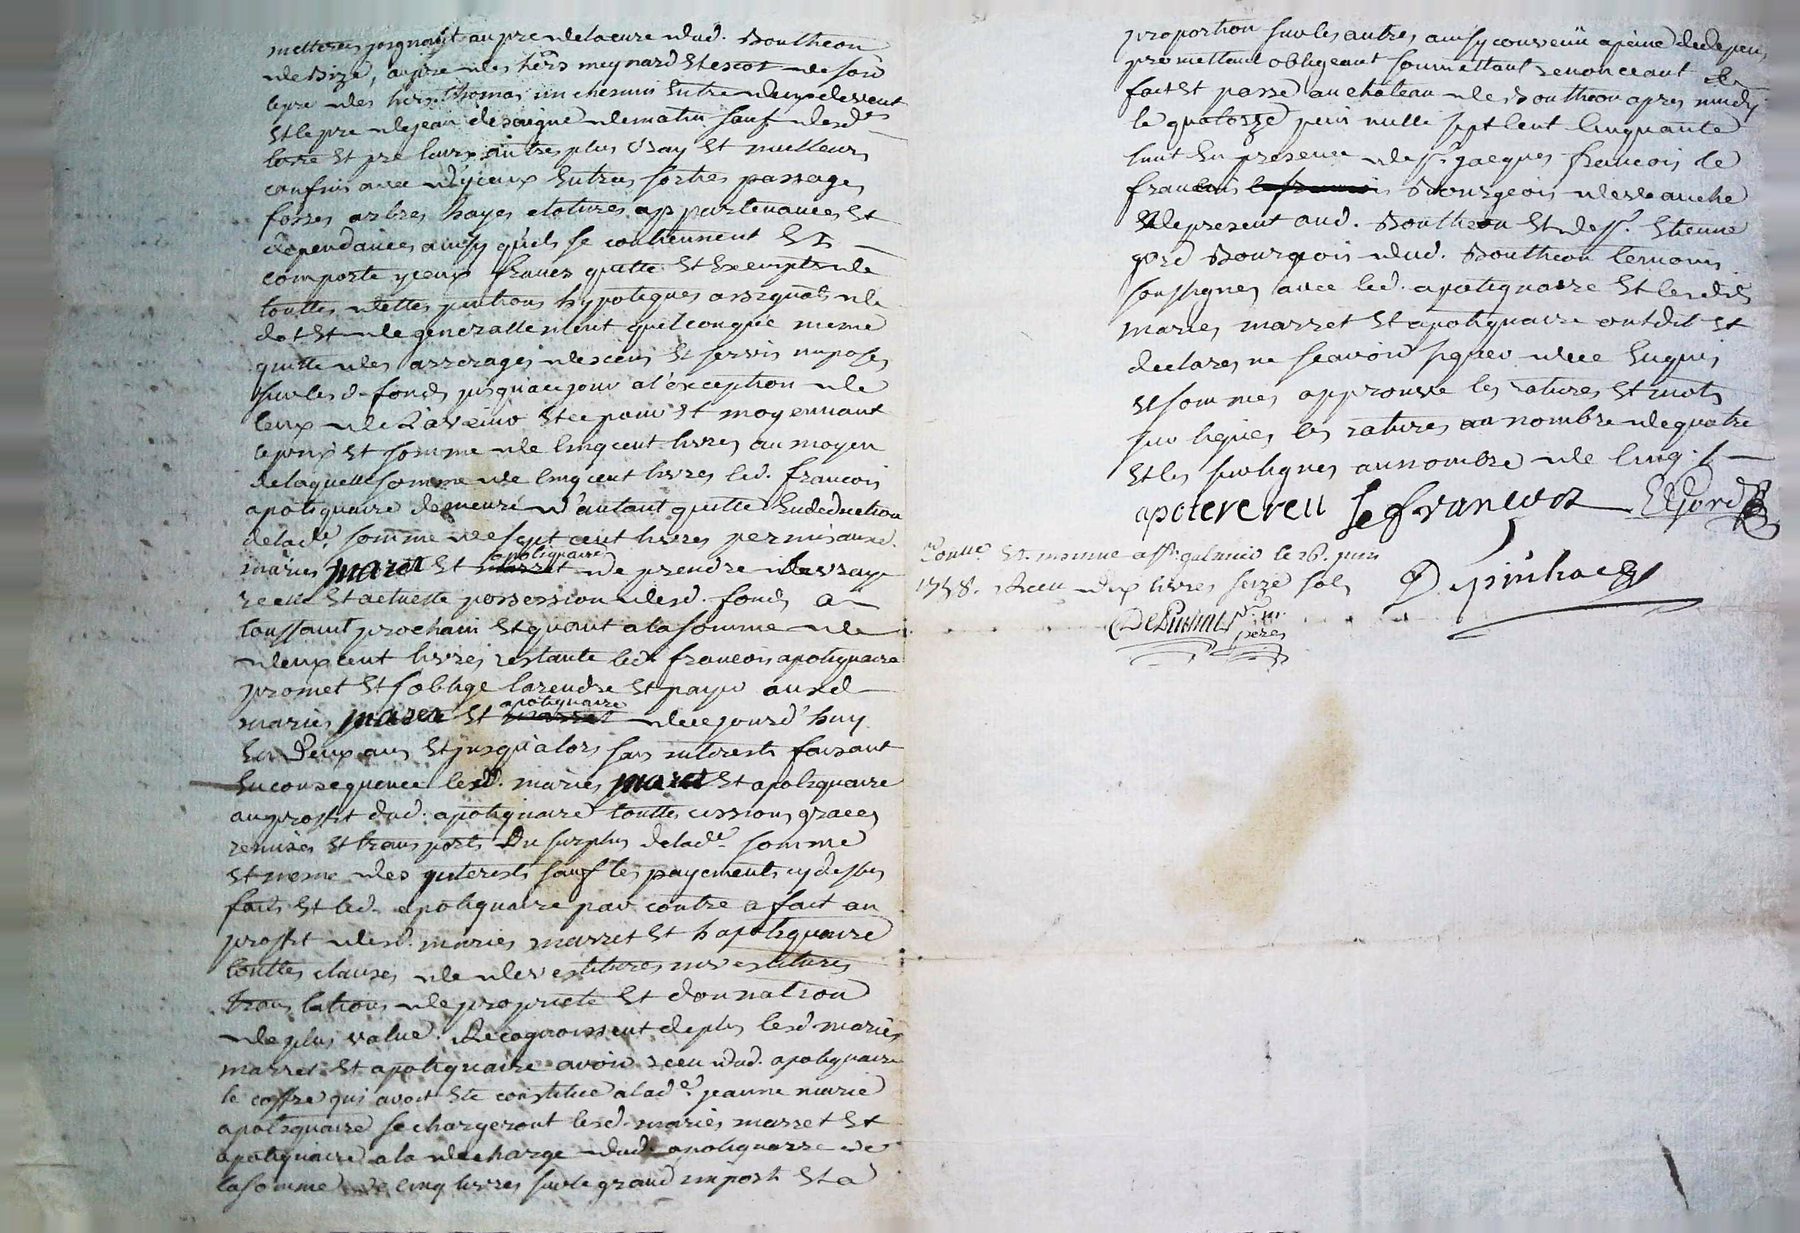 metterey joignant au pre de la cure dud. Bouthéon
de bize, au pre des hers meynard et escot de soir
le pre des hers. thomas un chemin entre deux de vent
et le pre de jean desaigne de matin sauf desd.
terre et pre leurs autres plus vray et meilleurs
confins avec d'yceux entrées sorties passages
fosses arbres hayes clotures appartenances et
dependances ainsy qu'ils se contiennent et
comporte yceux francs quitte et exempts de
touttes dettes pentions hypoteques arrerages de
dot et de generallement quelconque meme
quitte des arrerages des cens et servis imposés
sur lesd. fonds jusqu'a ce jour a l'exception de
ceux de L'avenir et ce pour et moyennant
le prix et somme de cinq cent livres au moyen
de laquelle somme de cinq cent livres led. francois
apotiquaire demeure d'autant quitte en deduction
de lade. somme de sept cent livres permis auxd.
mariés maret et marret apotiquaire de prendre la vraye
reelle et actuelle possession desd. fonds a
toussaint prochain et quant a la somme de
deux cent livres restante led. francois apotiquaire
promet et s'oblige la rendre et payer auxd.
mariés maret et marret apotiquaire de ce jourd'huy
en deux ans et jusqu'alors sans interests faisant
en consequence lesd. mariés maret et apotiquaire
au proffit dud. apotiquaire touttes cessions graces
remises et transports Du surplus de lade. somme
et meme des interests sauf les payements cy dessus
faits et led. apotiquaire par contre a fait au
proffit desd. mariés marret et hapotiquaire
touttes clauses de devestitures investitures
translations de proprieté et donnation
de plus value. Recognoissent de plus lesd mariés
marret et apotiquaire avoir receu dud. apotiquaire
le coffre qui avoit été constitué a lade. jeanne marie
apotiquaire se chargeront lesd. mariés marret et
apotiquaire a la decharge dud. apotiquaire de
la somme de cinq livres sur le grand impost et a
proportion sur les autres ainsy convenu a peine de depens
promettant obligeant soumettant renonceant &c
fait et passé au château de Bouthéon apres midy
le quatorze juin mille sept cent cinquante
huit en presence de sr. jacques francois le
francois Bourgeois
de present aud. Bouthéon et de sr. Etienne
gord Bourgeois dud. Bouthéon temoins
soussignes avec led. apotiquaire et lesdits
mariés marret et apotiquaire ont dit et
declarés ne scavoir signer de ce enquis
et sommés approuvé les ratures et mots
sur lignes les ratures au nombre de quatre
et les surlignes au nombre de cinq
apotere reu Le francois E Gord
Conlle. St. galmier le 26. juin
1758. Receu deux livres seize sols
Depinhac